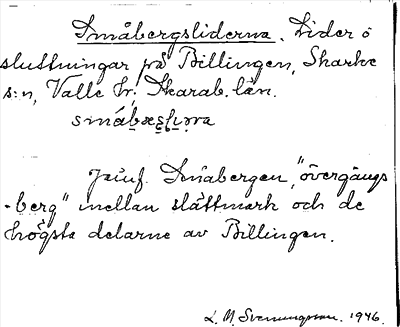 Småbergsliderna. Lider o
sluttningar på Billingen, Skarke
s:n, Valle hr, Skarab. län.
Jämf. Småbergen, "övergångs
-berg" mellan slättmark och de
högsta delarne av Billingen.
L. M. Svenungsson. 1946.